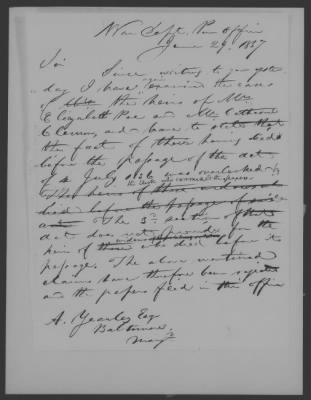 War Dept. Pen Office
June 29. 1837
Sir
Since writing to you yester
day I have again examined the cases
of the heirs of Mrs
Elizabeth Poe and Mrs Catherine
Clemm, and have to state that
the fact of their having died
before the passage of the act
of July 1836 was overlooked by
the clerk who examined the papers
The heirs of those
died before the passage of said
act. The 3d. section of the
act does not provide for the
heirs of widows who died before its
passage. The above mentioned
claims have therefore been rejected
and the papers filed in this office
A. Yearley Esq
Baltimore.
Mayd